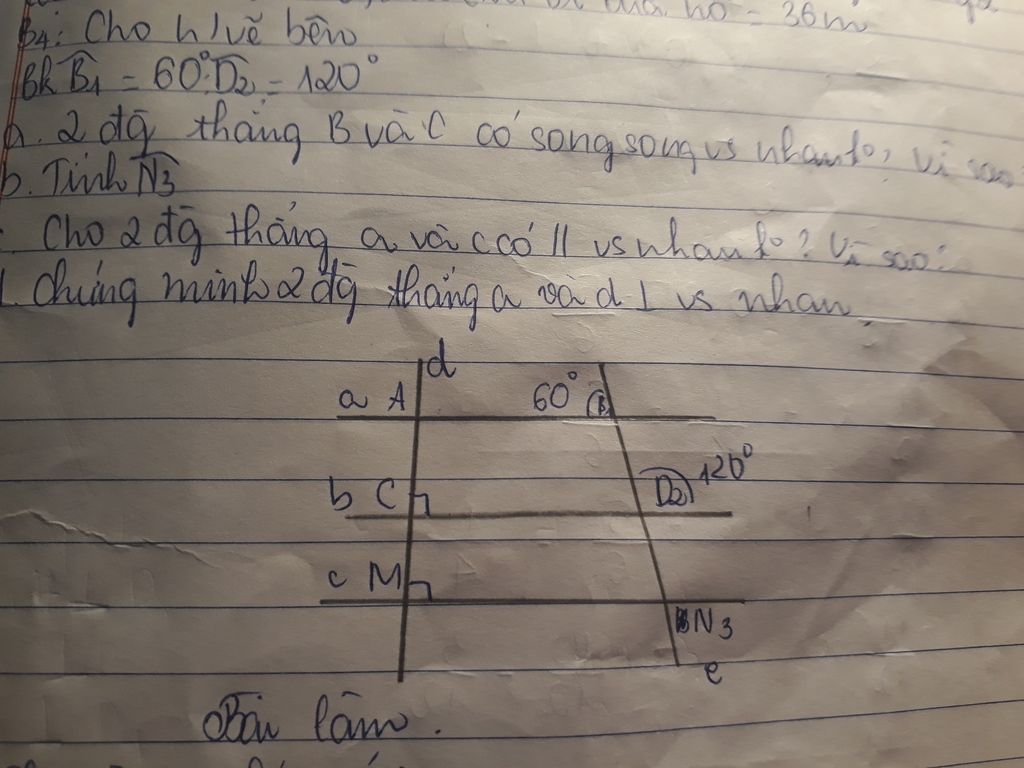 = 36m
B4: Cho h/vẽ bên
Bk B̂1 = 60°; D̂2 = 120°
a. 2 đg thẳng B và C có song song vs nhau ko, vì sao
b. Tính N̂3
Cho 2 đg thẳng a và c có // vs nhau ko? Vì sao?
chứng minh 2 đg thẳng a và d ⊥ vs nhau
d
a A 60° B
b C D2 120°
c M
N3
e
Bài làm.